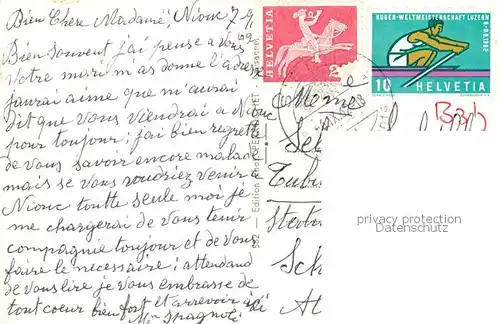 Bien Chère Madame, Niouc 7-9
Bien souvent j'ai pense a vous
votre mari m as donne l'adresse
j'aurai aime que m'aurai
dit que vous viendrai a Niouc
pour toujour; j'ai bien regrette
de vous savoir encore malade
mais se vous voudriez venir a
Niouc toutte seule moi je
me chargerai de vous tenir
compagnie toujour et de vous
faire le necessaire; attendand
de vous lire je vous embrasse de
tout coeur bien fort et arrevoir
Mme Spagnoli
HELVETIA
2
RUDER-WELTMEISTERSCHAFT LUZERN
6-9.9.1962
10 HELVETIA
Bzb
582 — Edition
privacy protection
Datenschutz